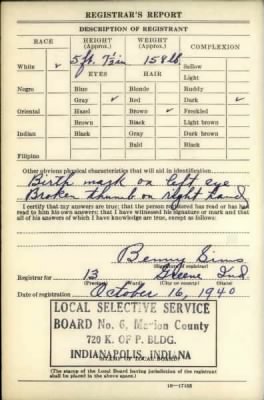 REGISTRAR'S REPORT
DESCRIPTION OF REGISTRANT
RACE HEIGHT (Approx.) WEIGHT (Approx.) COMPLEXION
White ✓ 5 ft. 7½ in 158 lb. Sallow
Light
EYES HAIR
Negro Blue Blonde Ruddy
Gray ✓ Red Dark ✓
Oriental Hazel Brown ✓ Freckled
Brown Black Light brown
Indian Black Gray Dark brown
Bald Black
Filipino
Other obvious physical characteristics that will aid in identification
Birth mark on left eye
Broken thumb on right hand
I certify that my answers are true; that the person registered has read or has
had read to him his own answers; that I have witnessed his signature or mark and that
all of his answers of which I have knowledge are true, except as follows:
Benny Sims
(Signature of registrar)
Registrar for 13 Greene Ind.
(Precinct) (Ward) (City or county) (State)
Date of registration October 16, 1940
LOCAL SELECTIVE SERVICE
BOARD No. 6, Marion County
720 K. OF P. BLDG.
INDIANAPOLIS, INDIANA
(STAMP OF LOCAL BOARD)
(The stamp of the Local Board having jurisdiction of the registrant
shall be placed in the above space.)